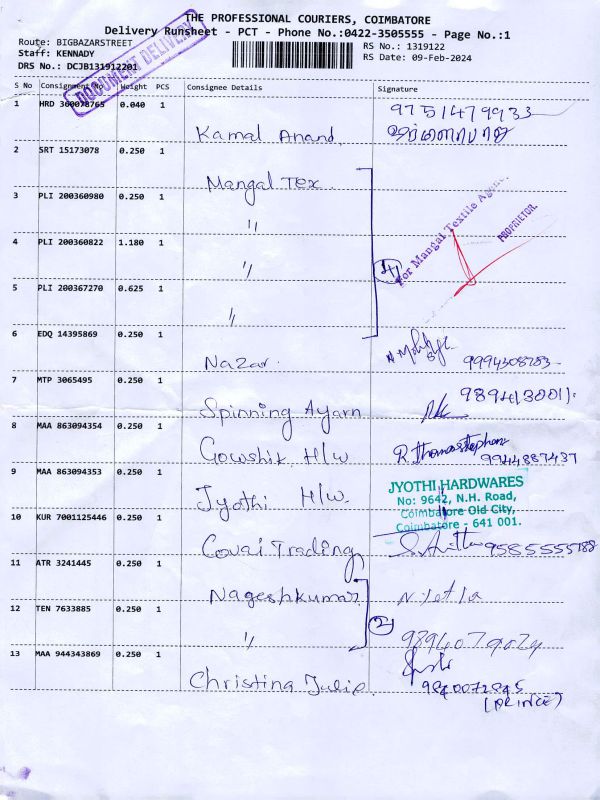 THE PROFESSIONAL COURIERS, COIMBATORE
Delivery Runsheet - PCT - Phone No.:0422-3505555 - Page No.:1
Route: BIGBAZARSTREET
RS No.: 1319122
Staff: KENNADY
RS Date: 09-Feb-2024
DRS No.: DCJB131912201
DOCUMENT DELIVERY
S No Consignment No Weight PCS Consignee Details Signature
1 HRD 360078765 0.040 1 Kamal Anand 9751479933
2 SRT 15173078 0.250 1 Mangal Tex
3 PLI 200360980 0.250 1 "
4 PLI 200360822 1.180 1 "
5 PLI 200367270 0.625 1 "
4
For Mangal Textile Agency
PROPRIETOR.
6 EDQ 14395869 0.250 1 Nazar. 9994308783
7 MTP 3065495 0.250 1 Spinning Ayarn
8 MAA 863094354 0.250 1 Gowshik H/w R. Thomas stephen
9944887437
9 MAA 863094353 0.250 1 Jyothi H/w.
JYOTHI HARDWARES
No: 9642, N.H. Road,
Coimbatore Old City,
Coimbatore - 641 001.
10 KUR 7001125446 0.250 1 Covai Trading
11 ATR 3241445 0.250 1 Nageshkumar
12 TEN 7633885 0.250 1 "
2
13 MAA 944343869 0.250 1 Christina Julie
9840072845
(PRINCE)